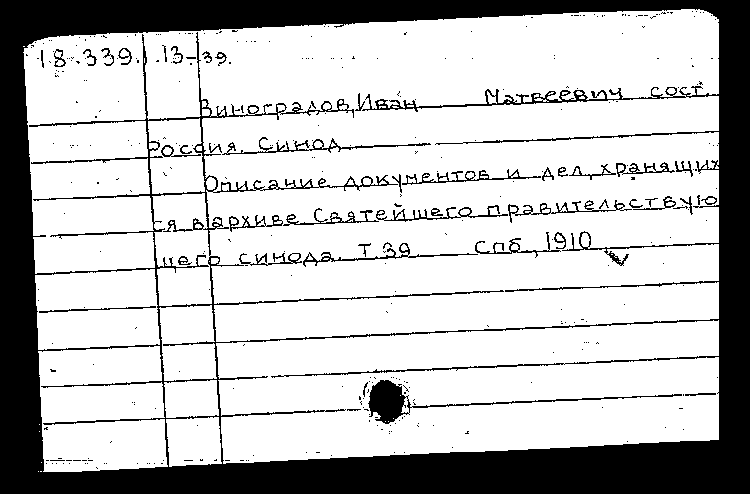 18.339.13-39.
Виноградов, Иван Матвеевич сост.
Россия. Синод.
Описание документов и дел, хранящих
ся в архиве Святейшего правительствую
щего синода. Т 39 Спб, 1910